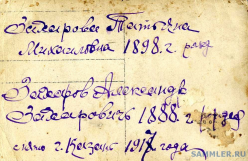 Захарова Татьяна
Михайловна 1898 г. рожд
Захаров Александр
Захарович 1888 г.
снято г. Казань 1917 года
SAMMLER.RU